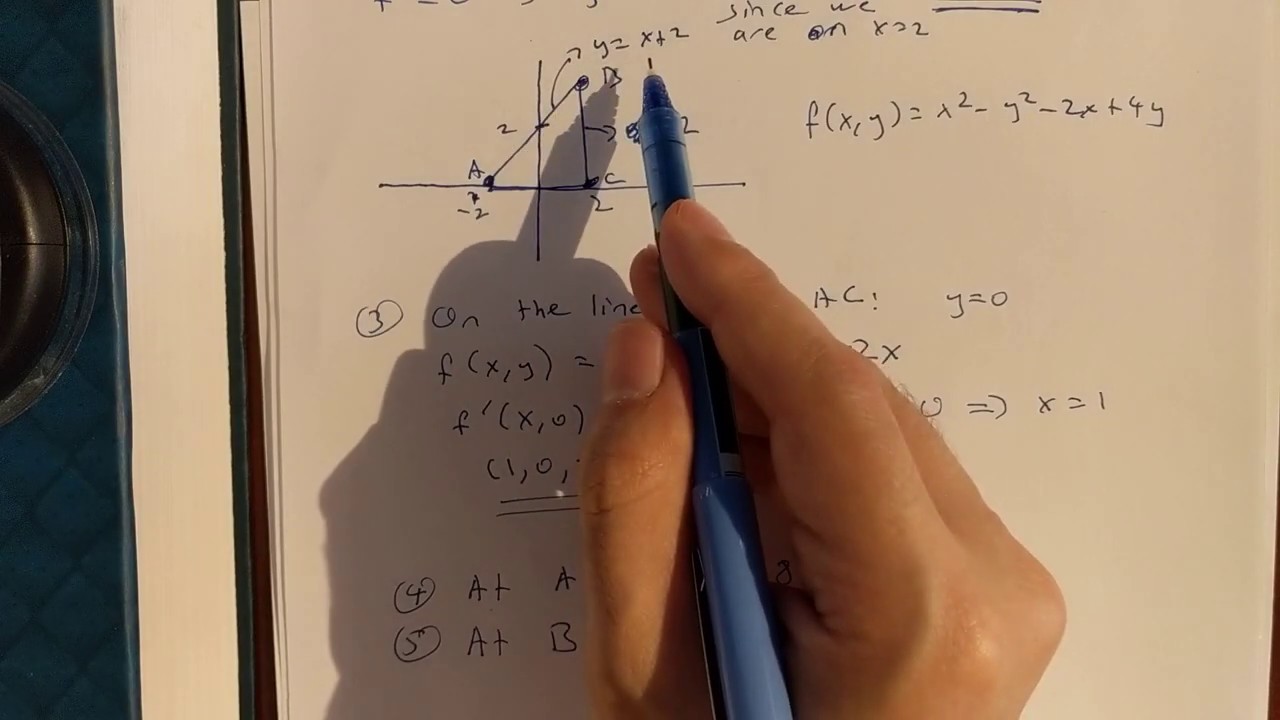 since we
are on x=2
y= x+2
B
f(x,y)= x²- y²-2x+4y
2
2
A
C
-2
2
③ On the line AC: y=0
f(x,y) = 2x
f'(x,0) 0 => x=1
(1,0,
④ At A 8
⑤ At B